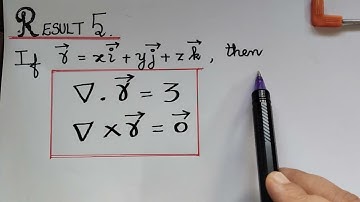 RESULT 5.
If r⃗ = xi⃗ + yj⃗ + zk⃗, then
∇ . r⃗ = 3
∇ × r⃗ = 0⃗